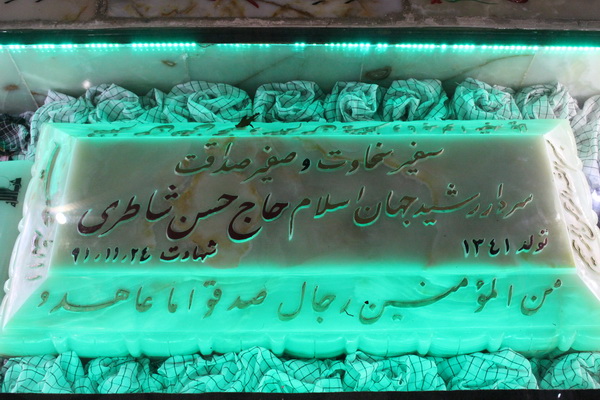 سفیر سخاوت و صفیر صداقت
سردار رشید جهان اسلام حاج حسن شاطری
تولد ۱۳۴۱ شهادت ۹۱٫۱۱٫۲۴
من المؤمنین رجال صدقوا ما عاهدو